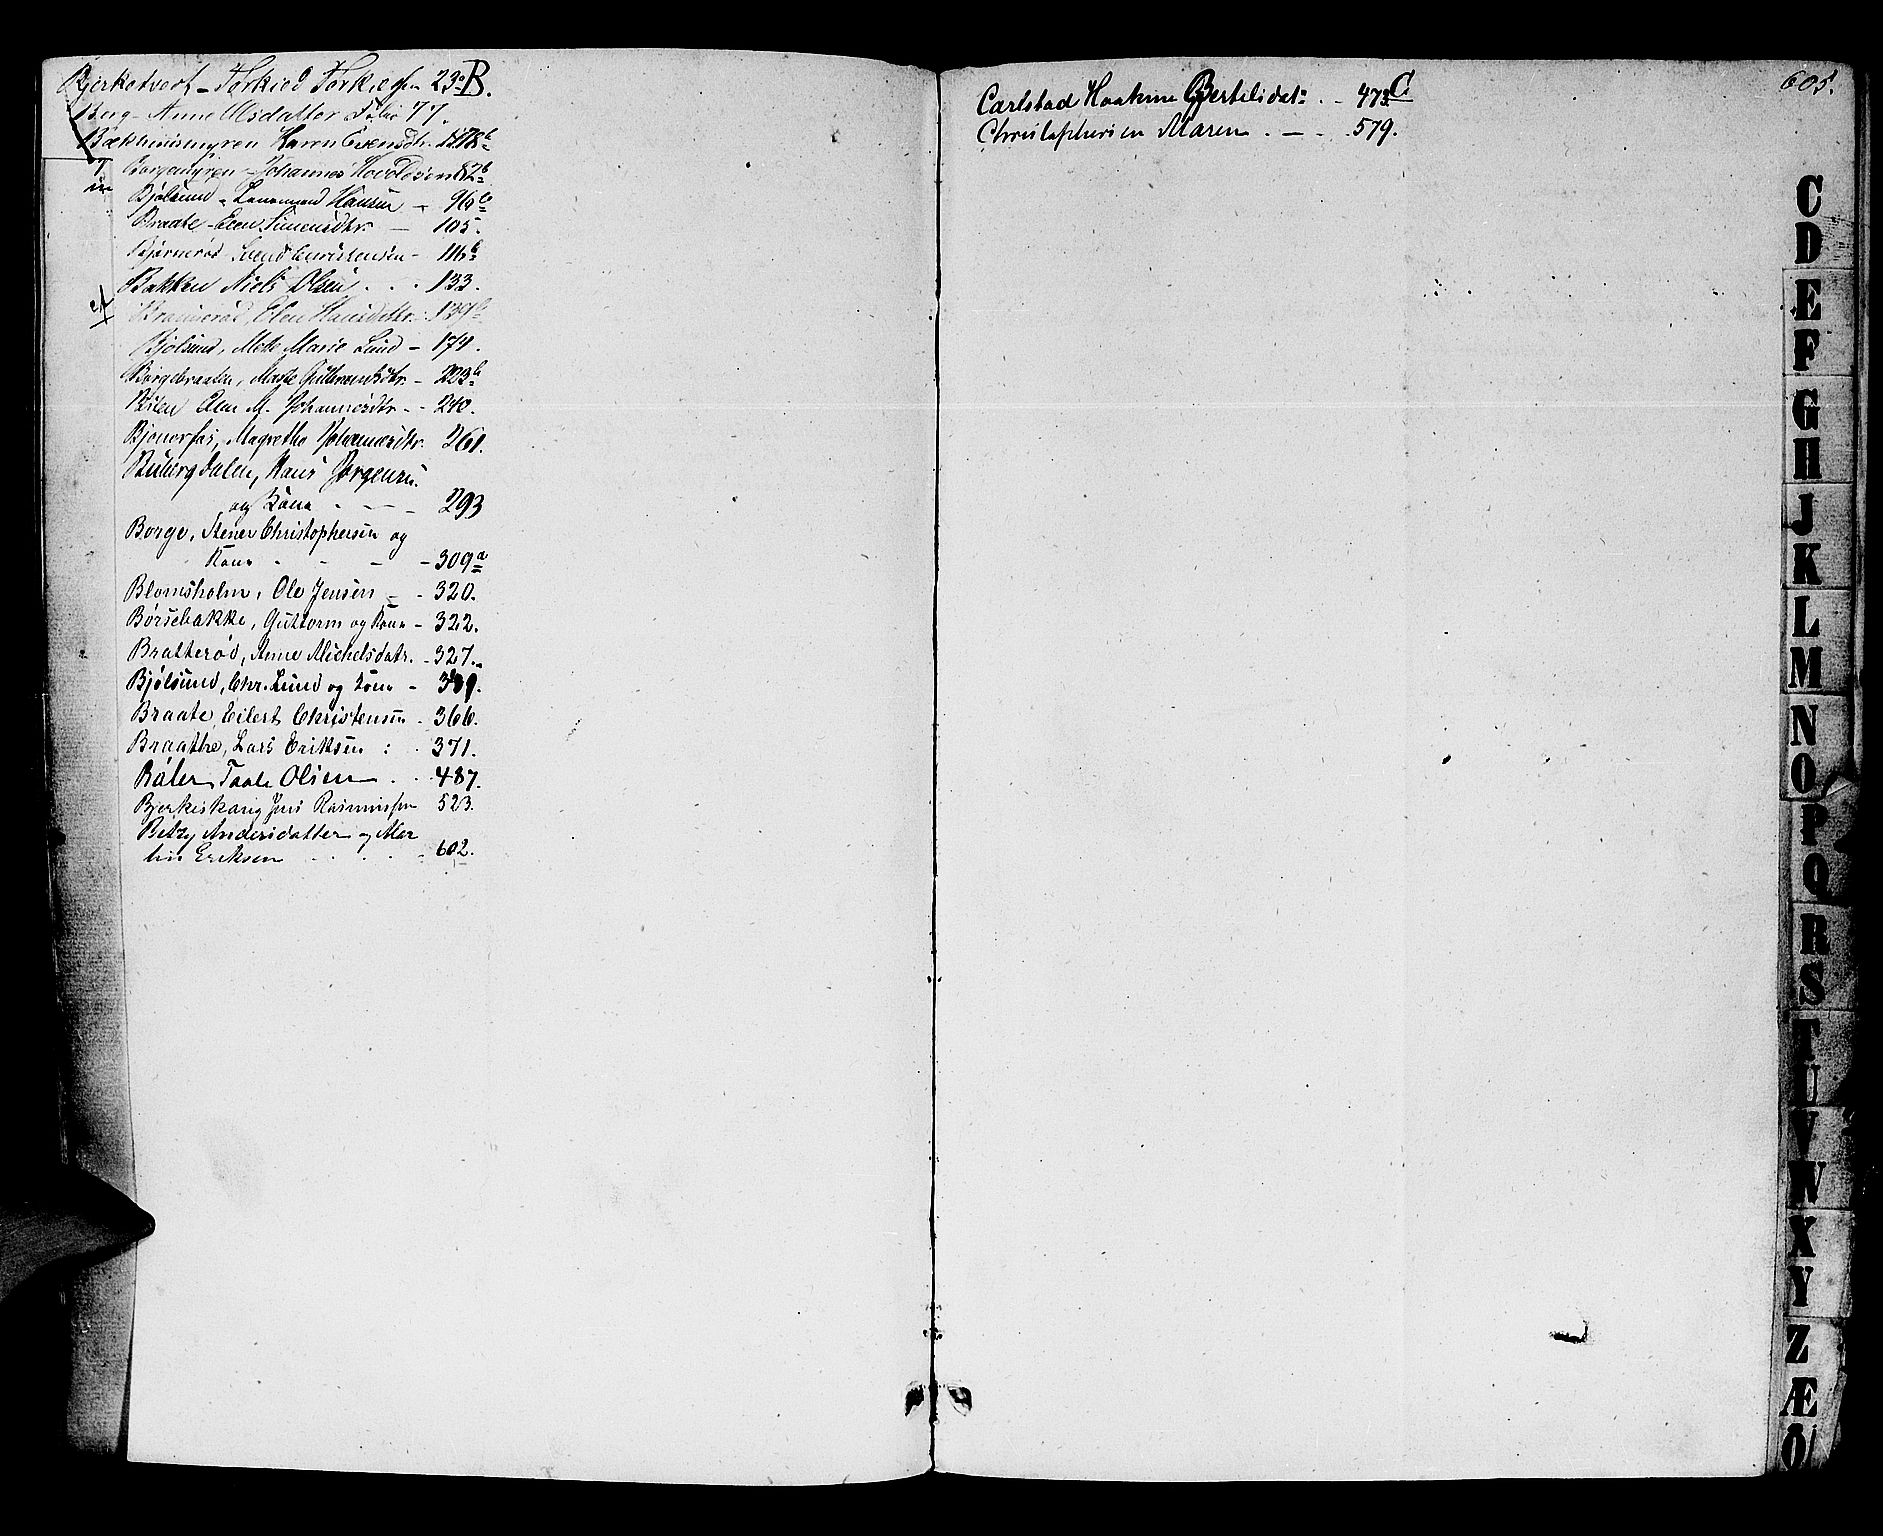 Bjerketvert - Torkied Torkiels. 23. B.
Berg - Anne Olsdatter Folio 77.
Bækhuusmyren Karen Evensdtr. 178 b
Borgemyren - Johannes Hovoldsen 82 b
Bjølsund - Hansen - 96 b
Braate - Elen Simensdtr. - 105.
Bjørnerød - Svend Christensen - 116 b
Bakken Niels Olsen . . . 133.
Elen Hansdattr. 139 b
Bjølsund, Mette Marie Lund - 174.
Borgebraaten, Marte Guttormsdtr. - 223 b
Bilen Elen M. Johannesdtr. - 240.
Magrethe Johannesdtr. 261.
Hans Jørgensen
og Kone - - - - 293
Borge, Stener Christophersen og
Kone - - - - 309 a
Blomsholm, Ole Jensen - - 320.
Børsebakke, Guttorm og Kone - 322.
Bratterød, Anne Michelsdatr. - 327.
Bjølsund, Chr. Lund og Kone -
Braate, Eilert Christensen - 366.
Braathe, Lars Eriksen : . 371.
Båler Taale Olsen . . . 487.
Bjerkeskaug Jens Rasmussen 523.
Betzy Andersdatter og Mar
tin Eriksen . . . . 602.
605.
Carlstad Haakine Bertelsdat: . - 473 C
Christophersen Maren . - . . 579.
C
D
E
F
G
H
J
K
L
M
N
O
P
Q
R
S
T
U
V
W
X
Y
Z
Æ
Ö